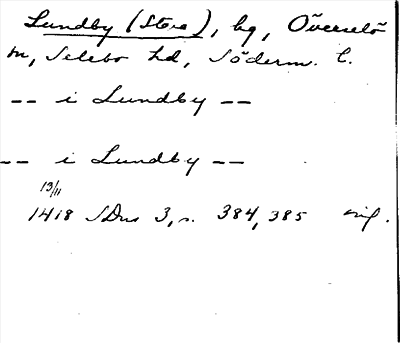 Lundby (Stora), by, Överselö
sn, Selebo hd, Söderm. l.
-- i Lundby --
-- i Lundby --
19/11
1418 SDns 3, s. 384, 385